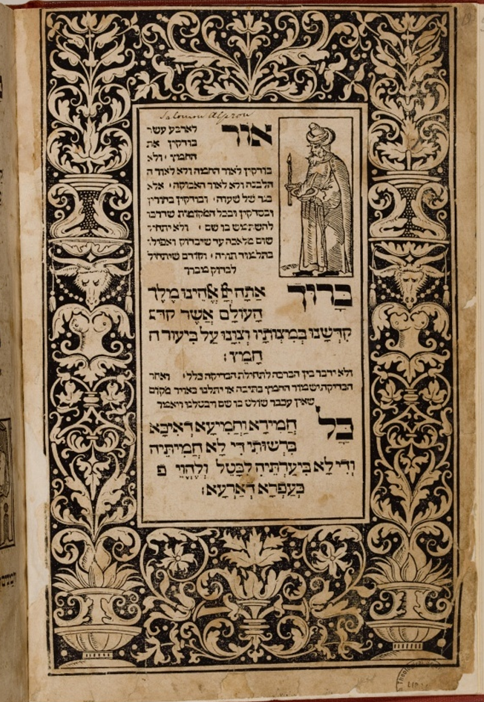 Salomon Alpron
אור לארבע עשר
בודקין את
החמץ ולא
בודקין לאור החמה ולא לאור ה
הלבנה ולא לאור האבוקה אלא
בנר של שעוה ובודקין בחורין
ובסדקין ובכל המקומות שדרכו
להשתמש בו שם ולא יתחיל
שום מלאכה עד שיבדוק ואפילו
בתלמוד תורה וקודם שיתחיל
לבדוק מברך
ברוך אתה יי אלהינו מלך
העולם אשר קדש
קדשנו במצותיו וצונו על ביעור ח
חמץ׃
ולא ידבר בין הברכה לתחילת הבדיקה כלל ואחר
הבדיקה ישמור החמץ בתיבה או יתלנו באויר מקום
שאין עכבר שולט בו שם ויבטלנו ויאמר
כל חמירא וחמיעא דאיכא
ברשותי די לא חמיתיה
ודי לא ביערתיה לבטל ולהוי פ
בעפרא דארעא׃